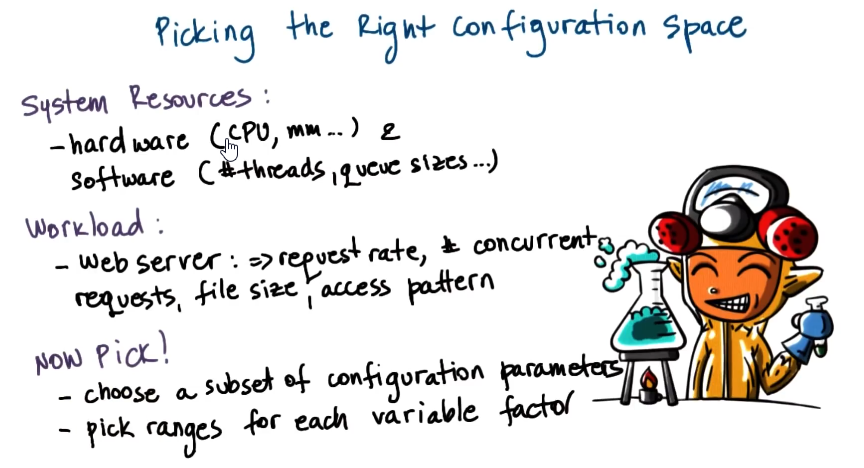 Picking the Right Configuration Space
System Resources:
- hardware (CPU, mm...) &
software (# threads, queue sizes...)
Workload:
- web server: => request rate, # concurrent
requests, file size, access pattern
Now Pick!
- choose a subset of configuration parameters
- pick ranges for each variable factor